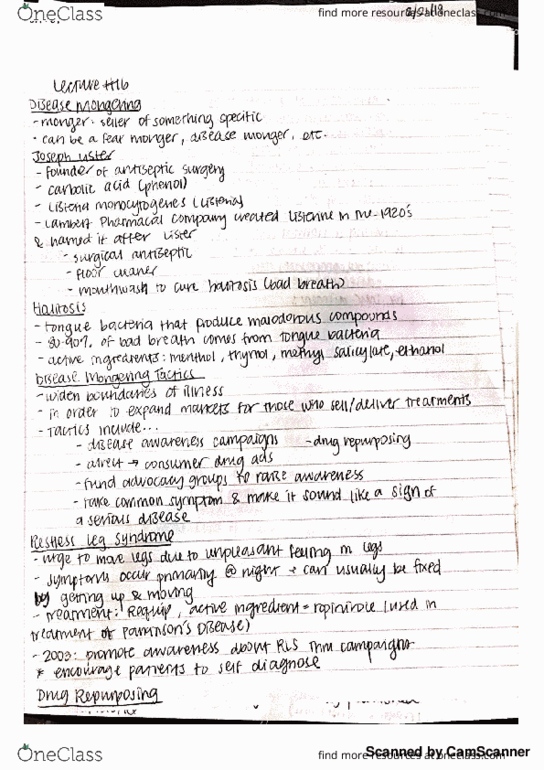 OneClass
find more resources at oneclass.com
Lecture #16
Disease Mongering
- monger: seller of something specific
- can be a fear monger, disease monger, etc.
Joseph Lister
- founder of antiseptic surgery
- carbolic acid (phenol)
- Listeria monocytogenes (Listeria)
- Lambert Pharmacal Company created Listerine in the 1920's
& named it after Lister
- surgical antiseptic
- floor cleaner
- mouthwash to cure halitosis (bad breath)
Halitosis
- tongue bacteria that produce malodorous compounds
- 80-90% of bad breath comes from tongue bacteria
- active ingredients: menthol, thymol, methyl salicylate, ethanol
Disease Mongering Tactics
- widen boundaries of illness
- in order to expand markets for those who sell/deliver treatments
- Tactics include...
- disease awareness campaigns - drug repurposing
- direct → consumer drug ads
- fund advocacy groups to raise awareness
- take common symptom & make it sound like a sign of
a serious disease
Restless Leg Syndrome
- urge to move legs due to unpleasant feeling in legs
- symptoms occur primarily @ night + can usually be fixed
by getting up & moving
- treatment: Requip, active ingredient = ropinirole (used in
treatment of Parkinson's Disease)
- 2003: promote awareness about RLS thru campaigns
* encourage patients to self diagnose
Drug Repurposing
OneClass
find more resources at oneclass.com
Scanned by CamScanner